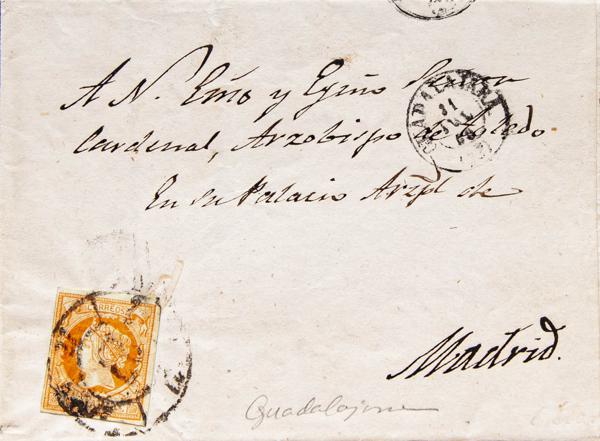 A N. Emo y Exmo Señor
Cardenal, Arzobispo de Toledo
En su Palacio Arzpl de
Madrid.
GUADALAJARA
31
JUL
CORREOS
Guadalajara